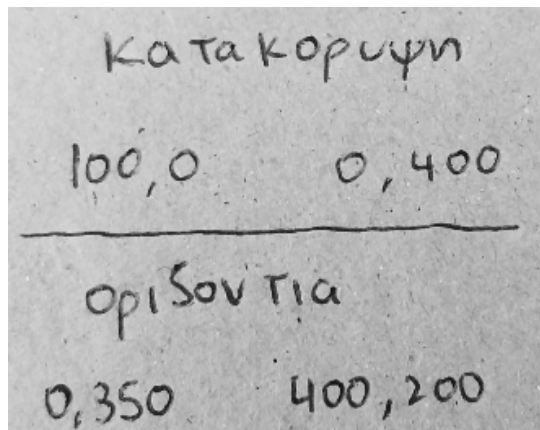 κατακορυφη
100,0 0,400
οριζοντια
0,350 400,200